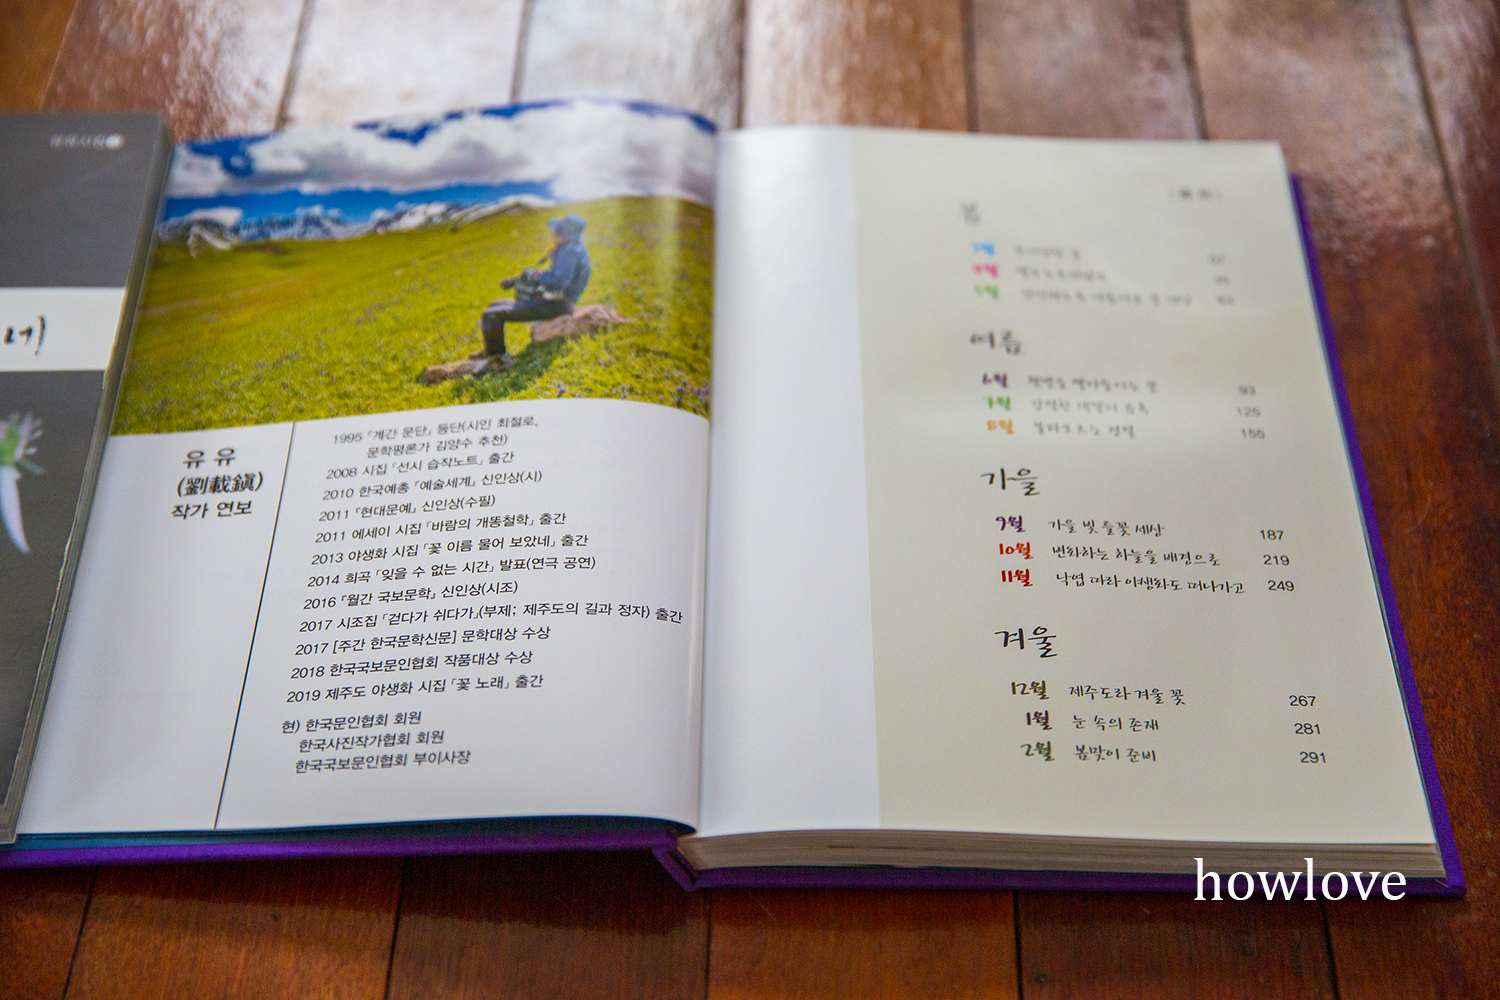 네
유 유
(劉載鎭)
작가 연보
1995 「계간 문단」 등단(시인 최절로,
문학평론가 김양수 추천)
2008 시집 「선시 습작노트」 출간
2010 한국예총 「예술세계」 신인상(시)
2011 「현대문예」 신인상(수필)
2011 에세이 시집 「바람의 개똥철학」 출간
2013 야생화 시집 「꽃 이름 물어 보았네」 출간
2014 희곡 「잊을 수 없는 시간」 발표(연극 공연)
2016 「월간 국보문학」 신인상(시조)
2017 시조집 「걷다가 쉬다가」(부제; 제주도의 길과 정자) 출간
2017 [주간 한국문학신문] 문학대상 수상
2018 한국국보문인협회 작품대상 수상
2019 제주도 야생화 시집 「꽃 노래」 출간
현) 한국문인협회 회원
한국사진작가협회 회원
한국국보문인협회 부이사장
봄
3월
4월
5월
여름
6월 93
7월 125
8월 155
가을
9월 가을 빛 들꽃 세상 187
10월 변화하는 하늘을 배경으로 219
11월 낙엽 따라 야생화도 떠나가고 249
겨울
12월 제주도라 겨울 꽃 267
1월 눈 속의 존재 281
2월 봄맞이 준비 291
howlove